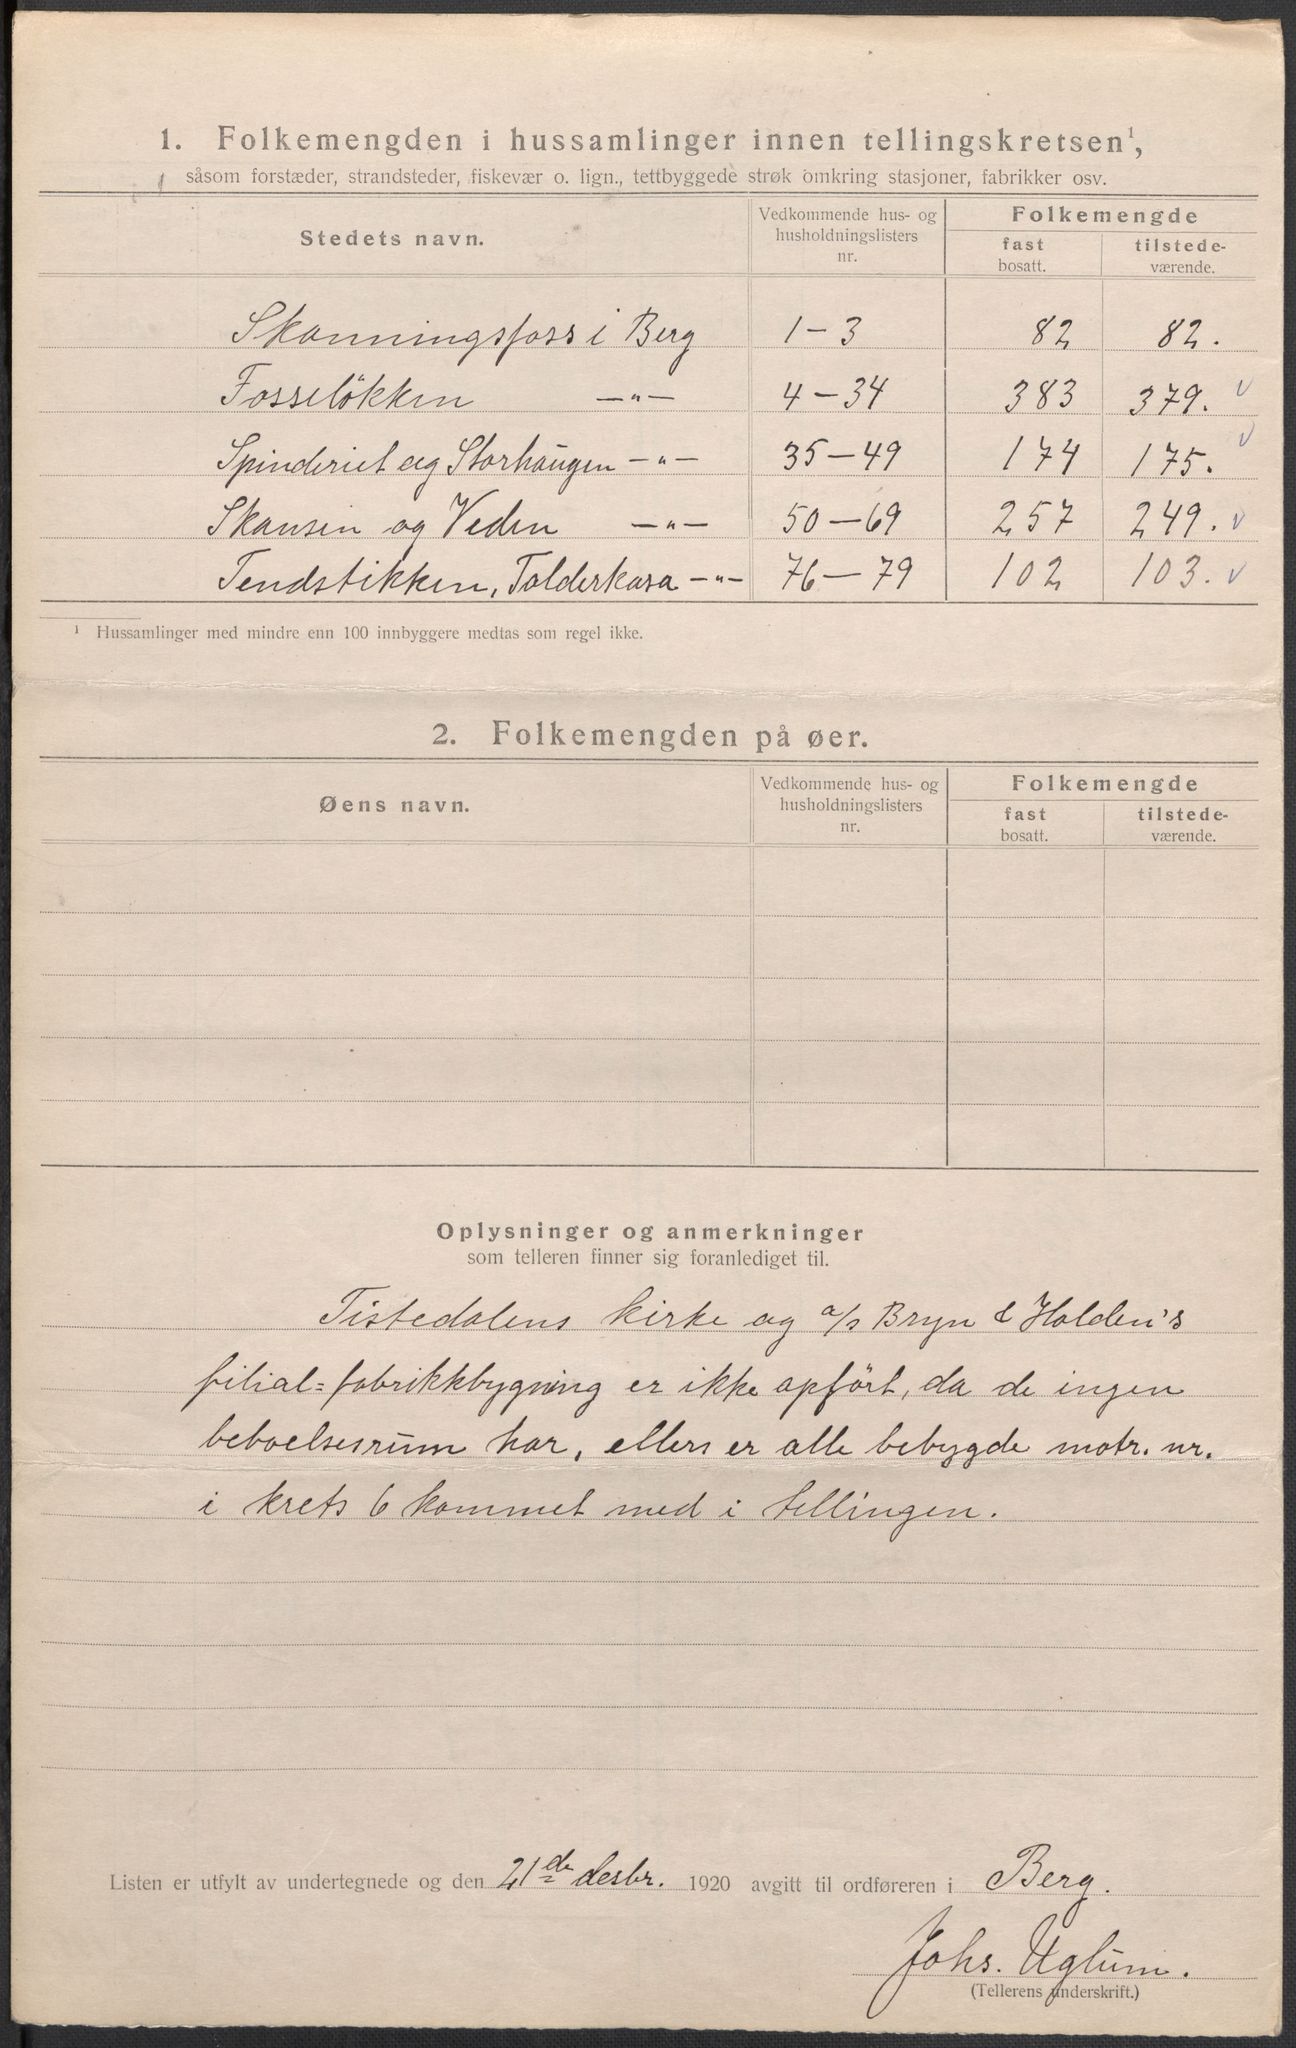 1. Folkemengden i hussamlinger innen tellingskretsen¹,
såsom forstæder, strandsteder, fiskevær o. lign., tettbyggede strøk omkring stasjoner, fabrikker osv.
Stedets navn. Vedkommende hus- og husholdningslisters nr. Folkemengde fast bosatt. tilstedeværende.
Skonningsfoss i Berg 1-3 82 82.
Fosseløkken —"— 4-34 383 379. v
Spinderiet og Storhaugen —"— 35-49 174 175. v
Skansen og Veden —"— 50-69 257 249. v
Tendstikken, Tolderkasa —"— 76-79 102 103. v
¹ Hussamlinger med mindre enn 100 innbyggere medtas som regel ikke.
2. Folkemengden på øer.
Øens navn. Vedkommende hus- og husholdningslisters nr. Folkemengde fast bosatt. tilstedeværende.
Oplysninger og anmerkninger
som telleren finner sig foranlediget til.
Tistedalens kirke og a/s Bryn & Halden's
filial-fabrikkbygning er ikke opført, da de ingen
beboelsesrum har, ellers er alle bebygde matr. nr.
i krets 6 kommet med i tellingen.
Listen er utfylt av undertegnede og den 21de desbr. 1920 avgitt til ordføreren i Berg.
Johs. Uglum.
(Tellerens underskrift.)